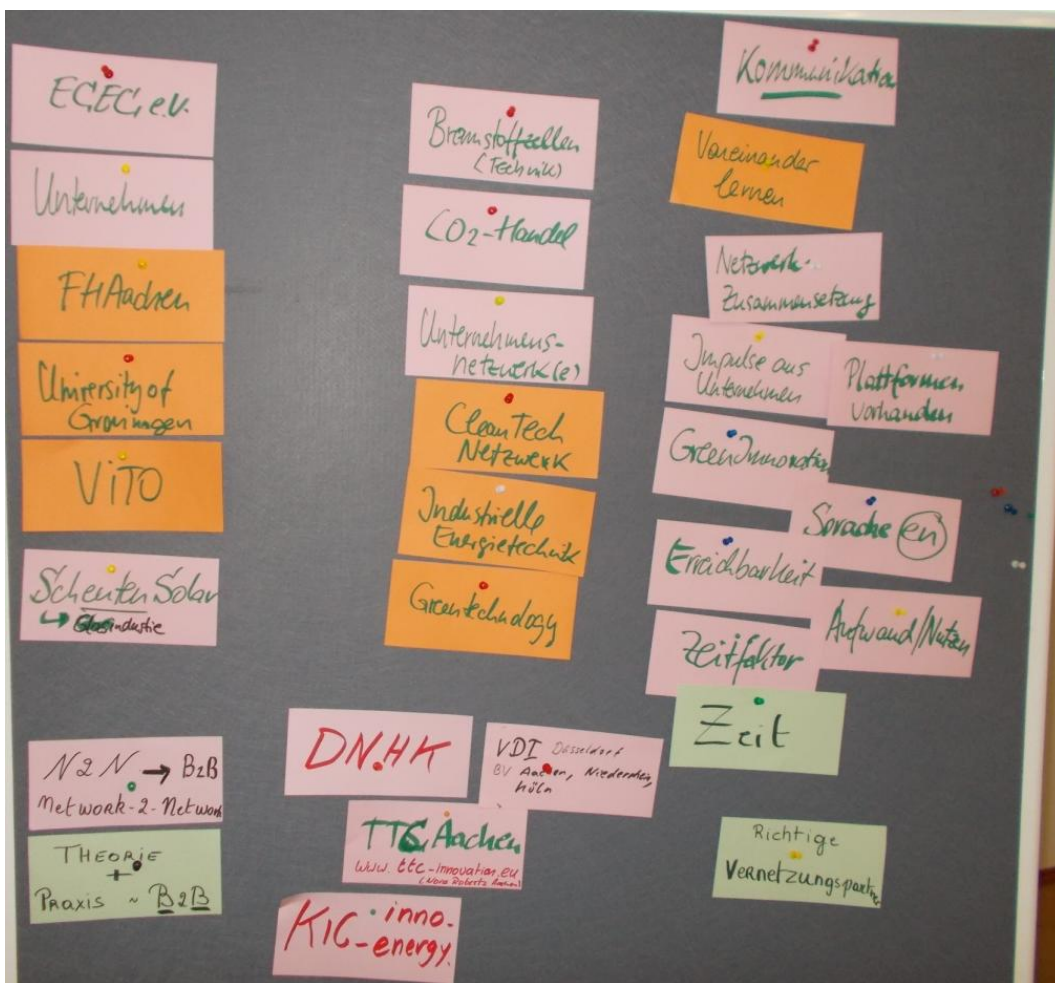 EGEG e.V.
Unternehmen
FH Aachen
University of
Groningen
ViTO
Schenten Solar
↳ Glasindustie
N2N → B2B
Network-2-Network
THEORIE
+
PRAXIS ~ B2B
Brennstoffzellen
(Technik)
CO2-Handel
Unternehmens-
netzwerk(e)
CleanTech
Netzwerk
Industrielle
Energietechnik
Greentechnology
DNHK
VDI Düsseldorf
BV Aachen, Niederrhein,
Köln
TTC Aachen
www.ttc-innovation.eu
KIC-inno-
energy.
Kommunikation
Voneinander
lernen
Netzwerk-
Zusammensetzung
Impulse aus
Unternehmen
Plattformen
vorhanden
GreenInnovation
Sprache en
Erreichbarkeit
Aufwand/Nutzen
Zeitfaktor
Zeit
Richtige
Vernetzungspartner